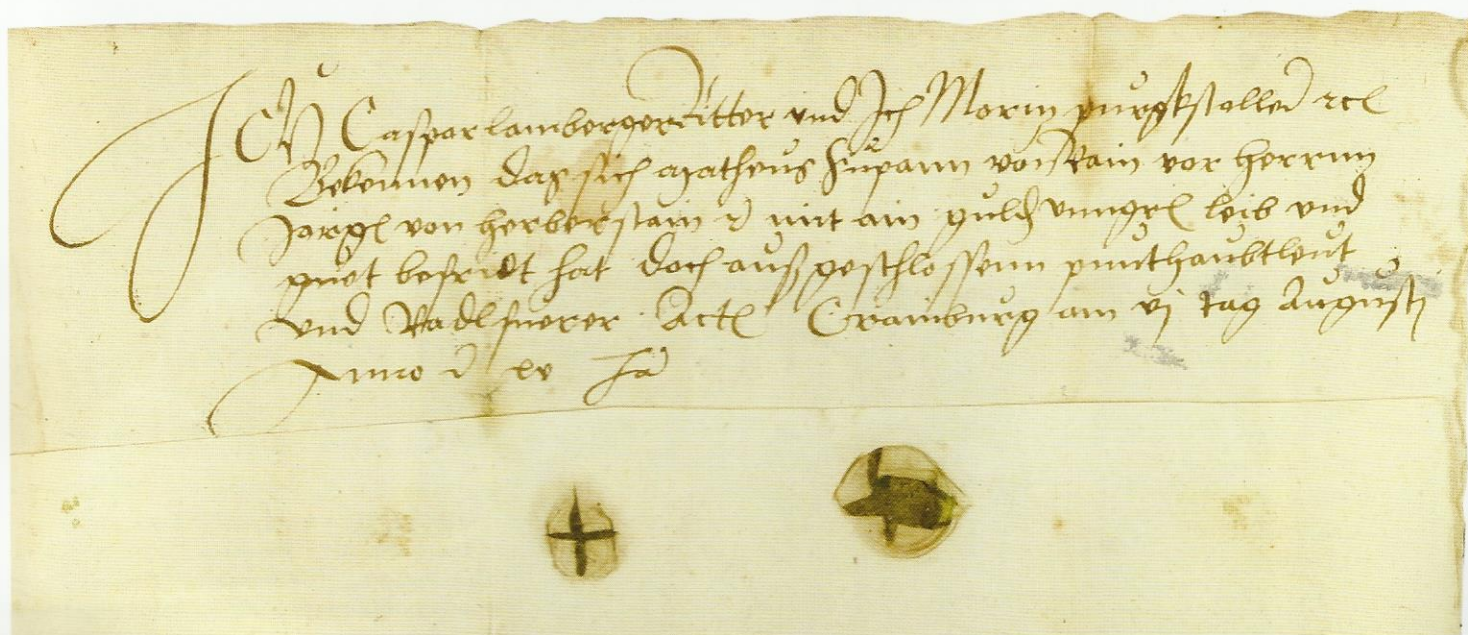 Ich Caspar lamberger Ritter vnd Ich Moritz purgkstaller etc
Bekennen das sich Matheus Supann von Stain vor herrnn
Jorgn von herberstain etc mit ain guldn vnngrn leib vnd
guet befridt hat doch außgeschlossenn punthaubtleut
vnd Radlfuerer Actn Crainburg am vj tag Augusti
Anno etc xv